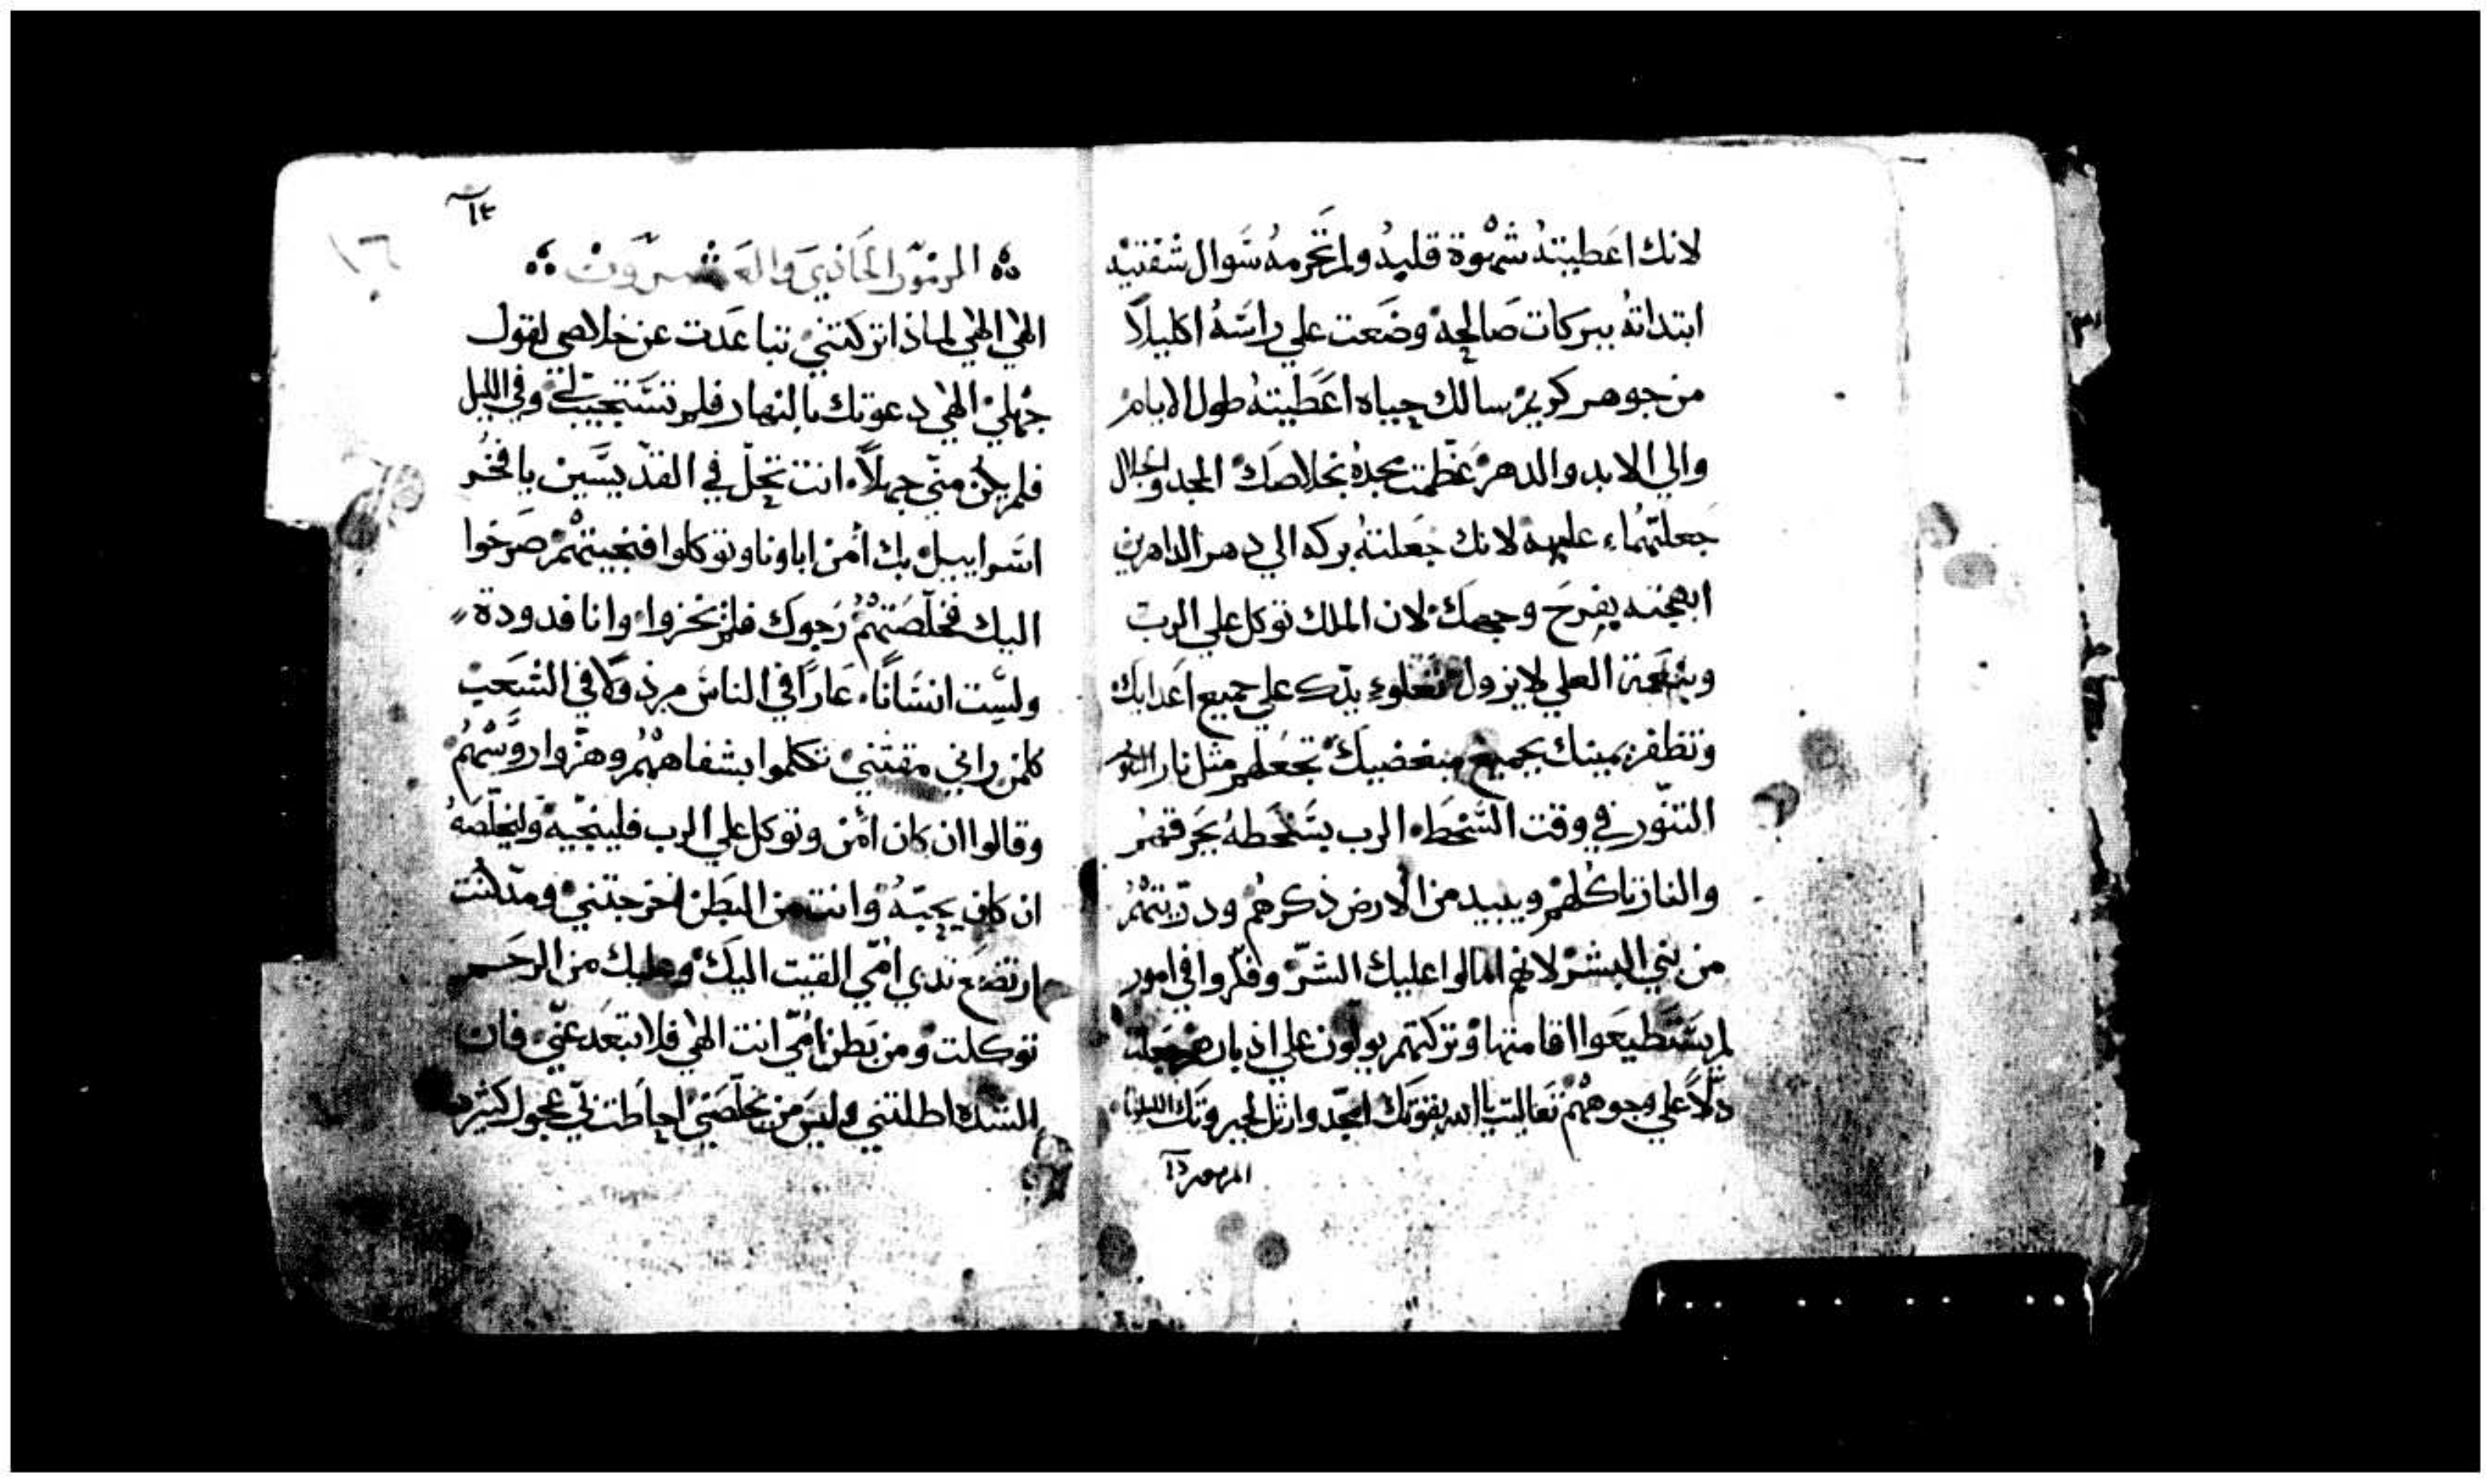 لانك اعَطيتهُ شهْوة قلبهُ ولم تحَرمهُ سَوال شفتيهْ
ابتداتهُ ببركات صَالحهْ وضَعت علي راسَهُ اكليلاً
من جوهر كريمْ سالك حياه اعَطيتهُ طول الايامْ
والي الابد والدهرْ عَظمت مجدهُ بخلاصَكْ المجد والجلال
جَعلتهُما عليهْ لانك جَعلتهُ بركه الي دهر الداهرين
ابهجته بفرحَ وجهكْ لان الملك توكل علي الرب
وبنعَمة العلي لا يزول تعَلوا يدّك علي جميع اعَدايكْ
وتظفر يمينك بجميع مبغضيكَ تجعَلهم مثل نار
التنوّر في وقت السَّخطه الرب بسَخَطهُ يحَرقهمْ
والنار تاكُلهمْ ويبيد من الارض ذكرهمْ ودرّيتهمْ
من بني البشرْ لانهم امالوا عليك الشرّ وفكّروا في امور
لم يسَتطيعَوا اقامتها وتركتهم يولون علي اذبارهم جعلت
دلّاً علي وجوههمْ تعَاليت يا الله بقوتكْ امجّد وارتل لجبروتكَ
المزمور ٢١
١٤
١٦
المزموّر الحَاذيَ والعَشروَنْ
الهي الهي لماذا تركتنيْ تباعَدت عن خلاصي لقول
جهليْ الهي دعوتك بالنهار فلم تسَتجيبَ لي وفي الليل
فلم يكُن منّي جهلاً انت تحَلّ في القدّيسَّين يا فخُر
اسَراييلْ بك أمن اباونا وتوكلوا فنجيتهمْ صَرخوا
اليك فخلّصَتهمْ رَجوك فلم يخزواْ وانا فدودة
ولسَت انسَاناً عَاراً في الناسَ مرذولاً في الشعَبْ
كلمن راني مقتنيْ تكلموا بشفاههمْ وهزّوا روّسَهمُ
وقالوا ان كان أمن وتوكل علي الرب فلينجّيهْ وليخلّصَهُ
ان كان يحبّهُ وانت من البَطنْ اخرجتنيْ ومذ كنت
ارتضَع ثدي امّي القيت اليكَْ وعليك من الرحَم
توكلت ومن بَطن امّي انت الهي فلا تبتعَد عنّي فان
الشده اطلتني وليسَ من يخلّصَني احاطت بي عجول كثيره